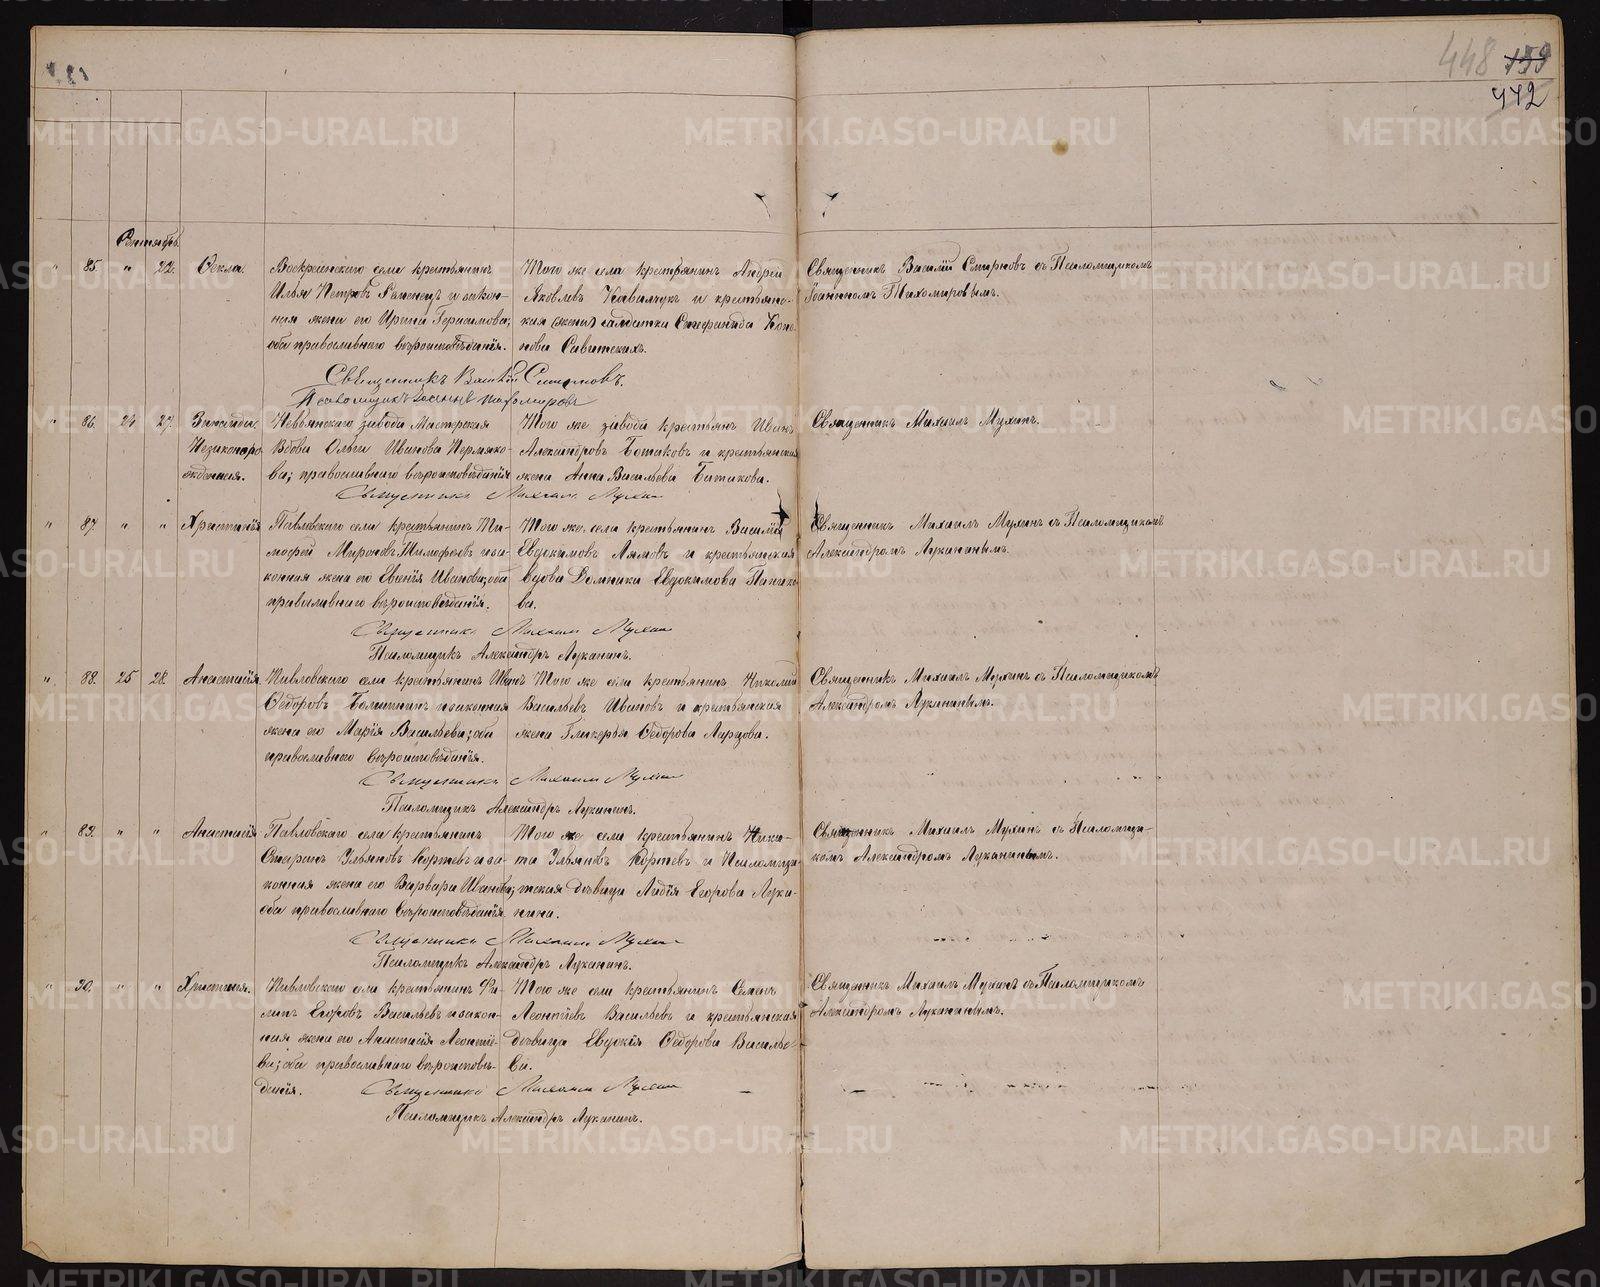 448 159
442
Сентябрь.
" 85. " 22. Фекла. Воскресенскаго села крестьянинъ
Илья Петровъ и закон-
ная жена его Ирина Герасимова;
оба православнаго вѣроисповѣданія.
Того же села крестьянинъ Андрей
Яковлевъ Ковальчукъ и крестьянс-
кая (жена) солдатка Стефанида
Савитскихъ.
Священникъ Василій Смирновъ съ Псаломщикомъ
Іоанномъ Тихомировымъ.
Священникъ Василій Смирновъ.
Псаломщикъ Іоаннъ Тихомировъ
" 86. 24 27. Зинаида. Невьянскаго завода Мастерская
Незаконоро- вдова Ольга Иванова Пермяко-
жденная. ва; православнаго вѣроисповѣданія
Того же завода крестьян. Иванъ
Александровъ Ботаковъ и крестьянская
жена Анна Васильева Ботакова.
Священникъ Михаилъ Мухинъ.
Священникъ Михаилъ Мухин
" 87. " " Христинія Павловскаго села крестьянинъ Ти-
мофей Мироновъ Тимофеевъ и за-
конная жена его Евгенія Иванова; оба
православнаго вѣроисповѣданія.
Того же села крестьянинъ Василій
Евдокимовъ Лямовъ и крестьянская
вдова Домника Евдокимова
ва.
Священникъ Михаилъ Мухинъ съ Псаломщикомъ
Александромъ Луканинымъ.
Священникъ Михаил Мухин
Псаломщикъ Александръ Луканинъ.
" 88. 25 28. Анастасія Павловскаго села крестьянинъ Иванъ
Ѳедоровъ и законная
жена его Марія Васильева; оба
православнаго вѣроисповѣданія.
Того же села крестьянинъ Николай
Васильевъ Ивановъ и крестьянская
жена Гликерья Ѳедорова
Священникъ Михаилъ Мухинъ съ Псаломщикомъ
Александромъ Луканинымъ.
Священникъ Михаил Мухин
Псаломщикъ Александръ Луканинъ.
" 89. " " Анастасія Павловскаго села крестьянинъ
Ульяновъ Кортевъ и за-
конная жена его Варвара Иванова;
оба православнаго вѣроисповѣданія.
Того же села крестьянинъ Ники-
та Ульяновъ Кортевъ и Псаломщи-
тская дѣвица Лидія Егорова Лука-
нина.
Священникъ Михаилъ Мухинъ съ Псаломщи-
комъ Александромъ Луканинымъ.
Священникъ Михаил Мухин
Псаломщикъ Александръ Луканинъ.
" 90. " " Христинія. Павловскаго села крестьянинъ Фи-
липъ Егоровъ Васильевъ и закон-
ная жена его Анастасія Леонтье-
ва; оба православнаго вѣроисповѣ-
данія.
Того же села крестьянинъ Семенъ
Леонтіевъ Васильевъ и крестьянская
дѣвица Евдокія Ѳедорова Василье-
ва.
Священникъ Михаилъ Мухинъ съ Псаломщикомъ
Александромъ Луканинымъ.
Священникъ Михаил Мухин
Псаломщикъ Александръ Луканинъ.
METRIKI.GASO-URAL.RU